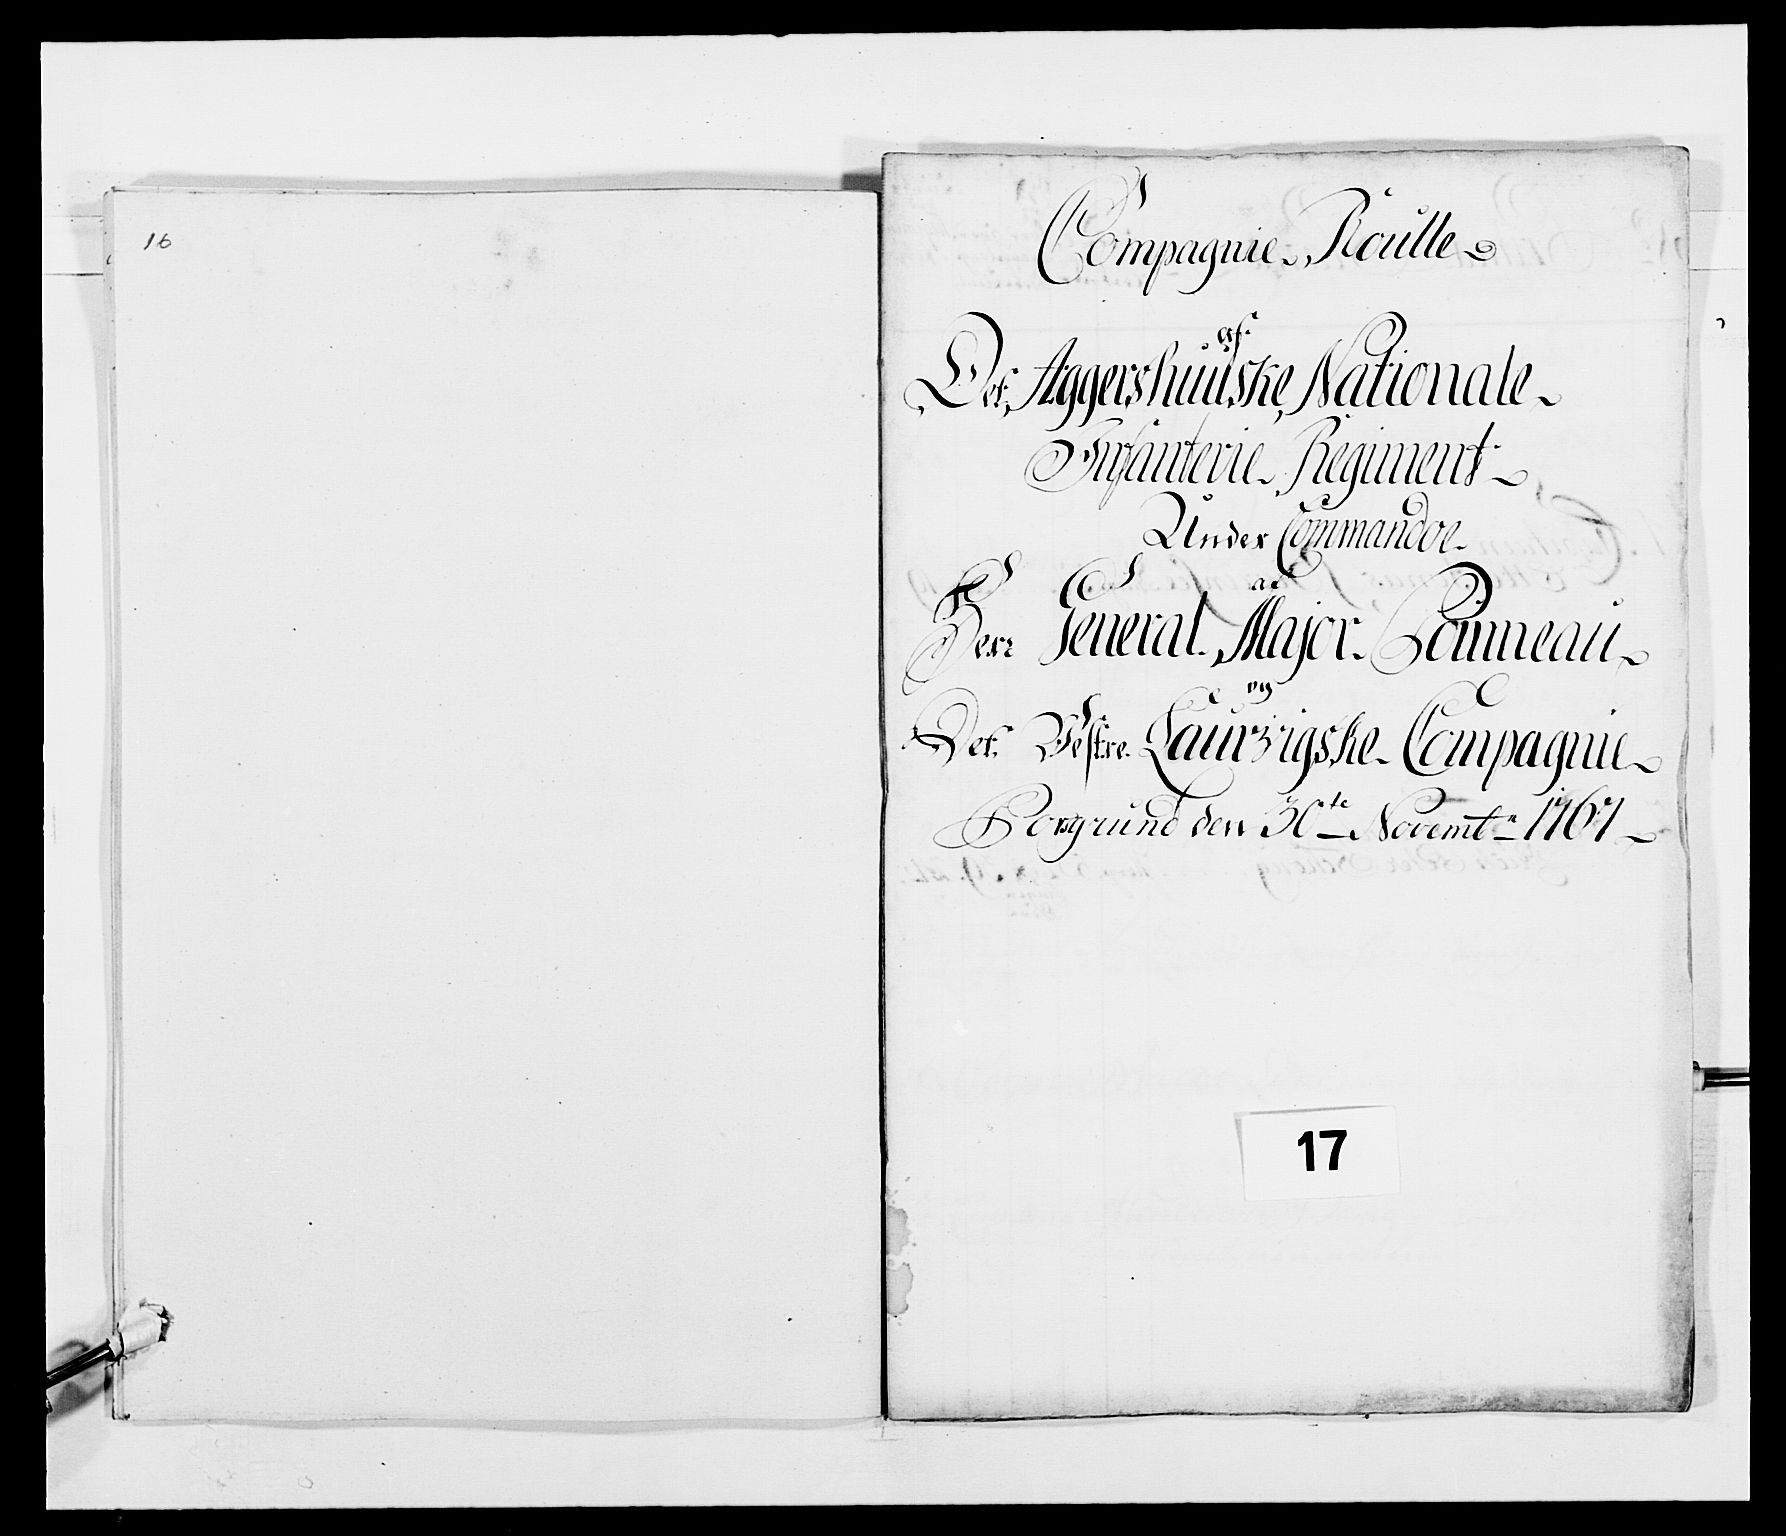 16
Compagnie Roulle
af
Det Aggershuuske Nationale
Infanterie Regiment
Under Commandoe
af
Herr General Major
og
Det Vestre Laurvigske Compagnie
Porsgrund den 30te Novembr 1767
17